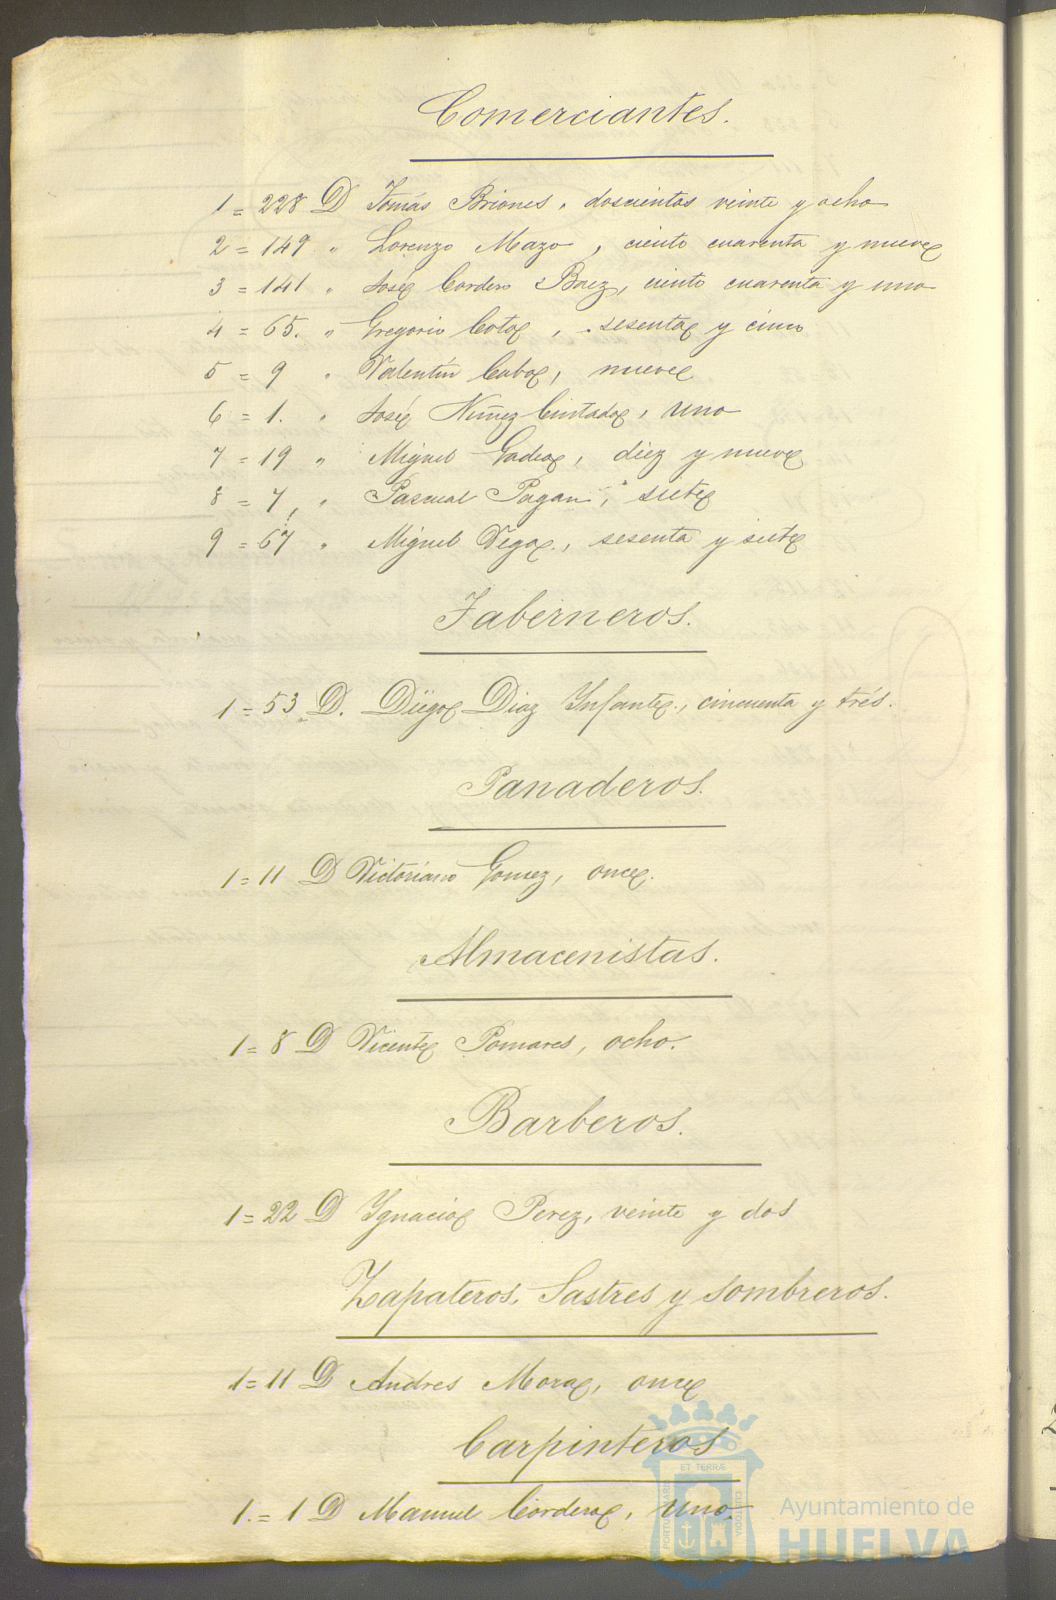 Comerciantes.
1 = 228 D Tomás Briones, doscientos veinte y ocho
2 = 149 " Lorenzo Mazo, ciento cuarenta y nueve
3 = 141 " José Cordero Baez, ciento cuarenta y uno
4 = 65. " Gregorio Cota, sesenta y cinco
5 = 9 " Valentín Cabo, nueve
6 = 1. " José Nuñez Cintado, uno
7 = 19 " Miguel Gadea, diez y nueve
8 = 7, " Pascual Pagan, siete
9 = 67 " Miguel Vega, sesenta y siete
Taberneros.
1 = 53 D. Diego Diaz Ynfante, cincuenta y trés.
Panaderos.
1 = 11 D Victoriano Gomez, once.
Almacenistas.
1 = 8 D Vicente Pomares, ocho.
Barberos.
1 = 22 D Ygnacio Perez, veinte y dos
Zapateros, Sastres y sombreros.
1 = 11 D Andres Mora, once
Carpinteros
1. = 1 D Manuel Cordero, uno.
ET TERRÆ
Ayuntamiento de
HUELVA